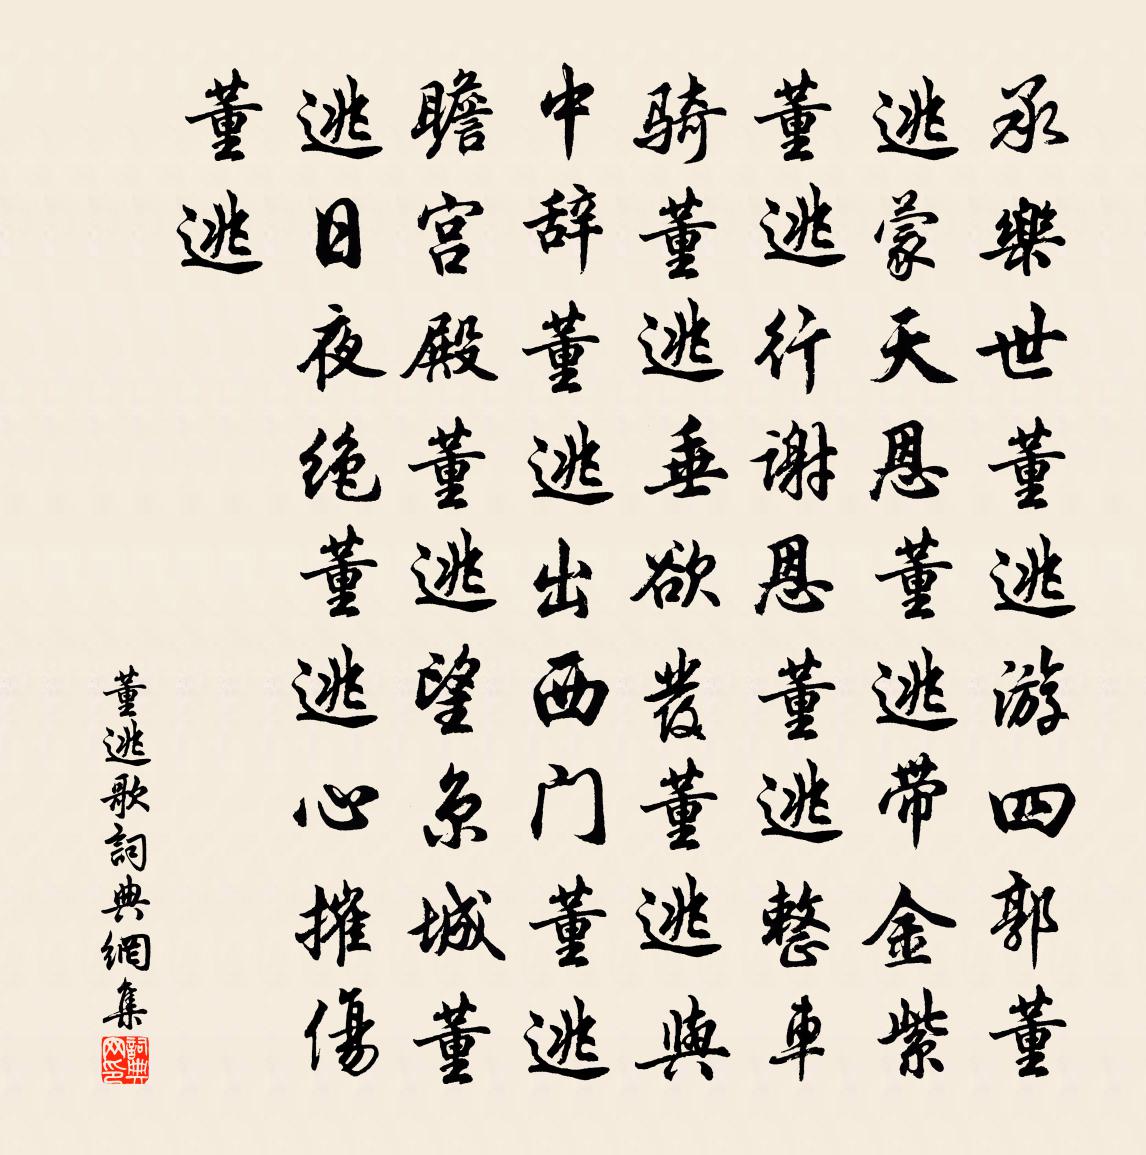 承樂世董逃游四郭董
逃蒙天恩董逃带金紫
董逃行谢恩董逃整車
骑董逃垂欲發董逃與
中辞董逃出西门董逃
瞻宫殿董逃望京城董
逃日夜绝董逃心摧傷
董逃
董逃歌詞典網集
詞典网印